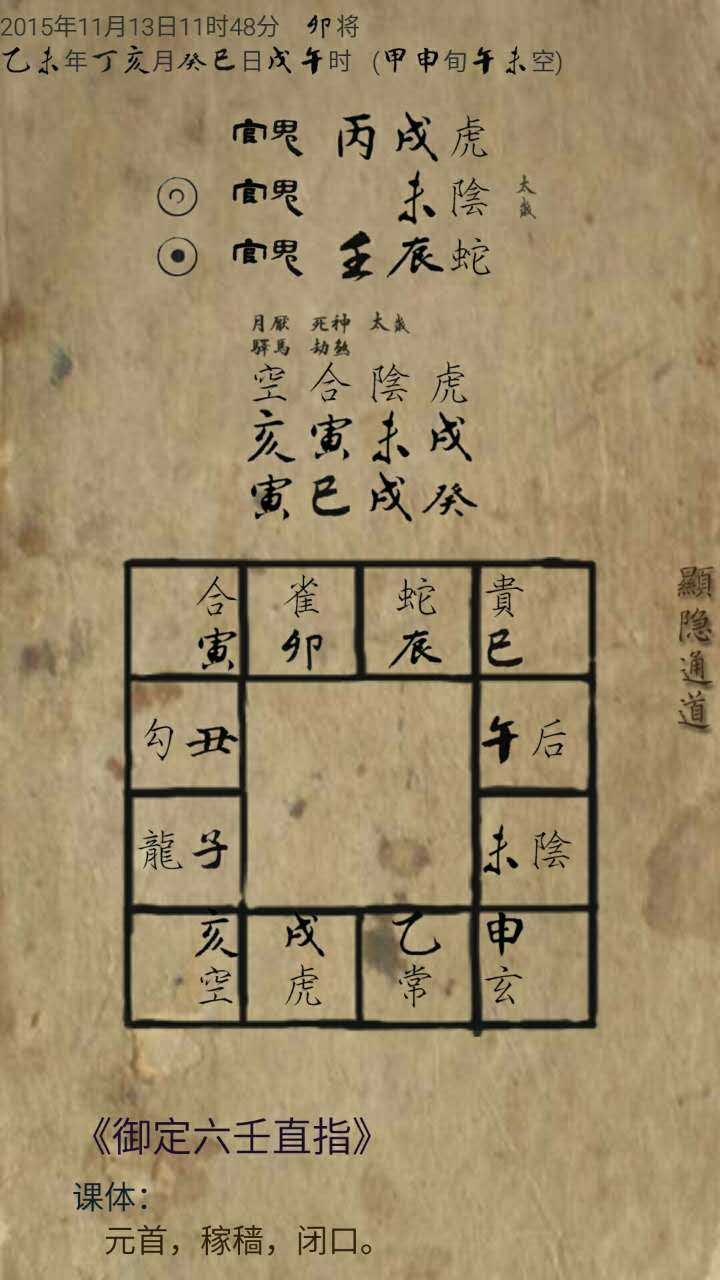 2015年11月13日11时48分 卯将
乙未年丁亥月癸巳日戊午时 (甲申旬午未空)
官鬼 丙戌虎
官鬼 未陰 太歲
官鬼 壬辰蛇
月厭 死神 太歲
驛馬 劫煞
空 合 陰 虎
亥 寅 未 戌
寅 巳 戌 癸
合 雀 蛇 貴
寅 卯 辰 巳
勾 丑 午 后
龍 子 未 陰
亥 戌 乙 申
空 虎 常 玄
顯隐通道
《御定六壬直指》
课体：
元首，稼穑，闭口。